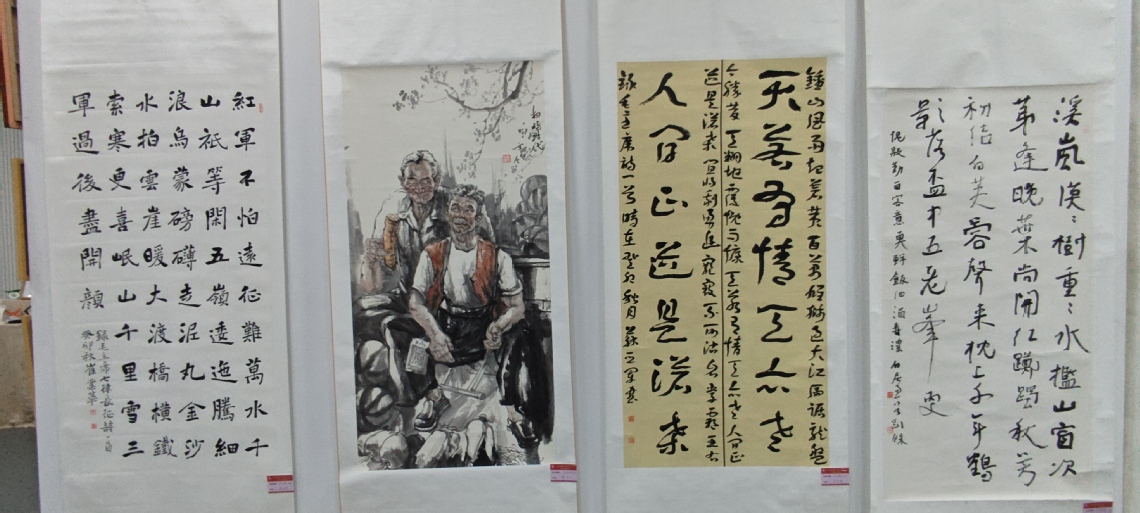 紅軍不怕遠征難萬水千
山祇等閑五嶺逶迤騰細
浪烏蒙磅礴走泥丸金沙
水拍雲崖暖大渡橋橫鐵
索寒更喜岷山千里雪三
軍過後盡開顏
錄毛主席七律長征詩一首
癸卯秋崔
鍾山風雨起苍黄百萬雄師过大江虎踞龍盤
天若有情天亦老
今勝昔天翻地覆慨而慷天若有情天亦老人间正
道是沧桑宜将剩勇追窮寇不可沽名學霸王右
人间正道是沧桑
錄毛主席詩一首時在癸卯秋月
溪岚漠々樹重々水檻山窗次
第逢晚葉尚開红躑躅秋芳
初结白芙蓉聲来枕上千年鶴
影落盃中五老峯更
愧殷勤留客意魚鮮飯细酒香濃